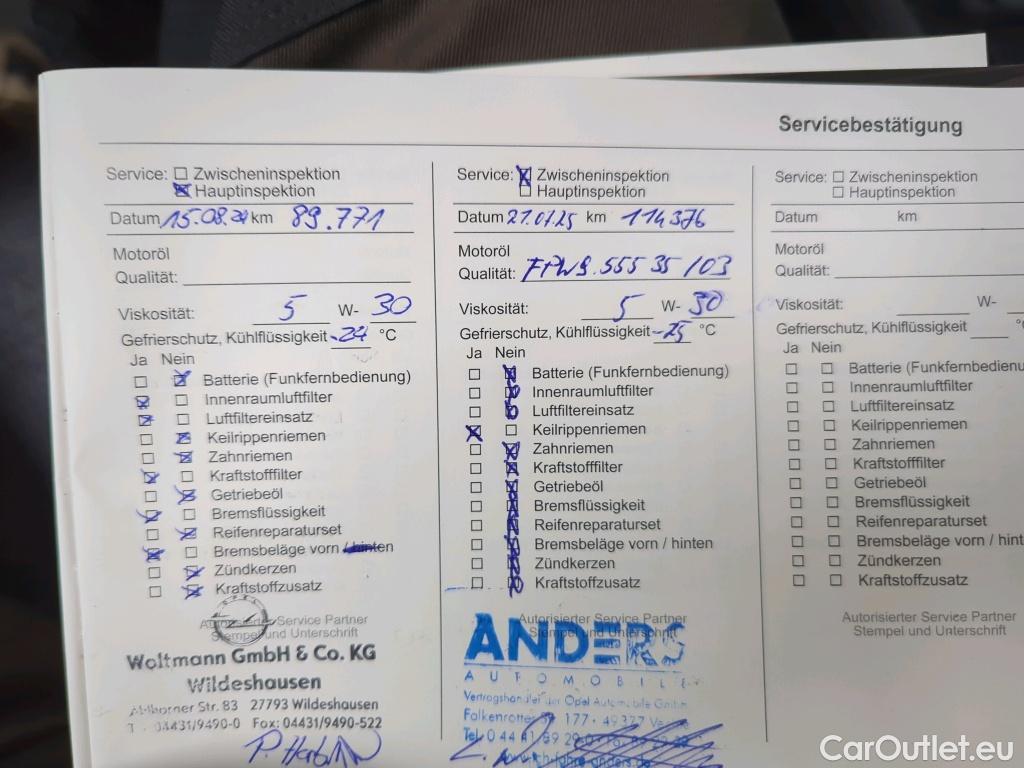 Servicebestätigung
Service: Zwischeninspektion
Hauptinspektion
Datum 15.08.24 km 89.771
Motoröl
Qualität:
Viskosität: 5 W- 30
Gefrierschutz, Kühlflüssigkeit -24 °C
Ja Nein
Batterie (Funkfernbedienung)
Innenraumluftfilter
Luftfiltereinsatz
Keilrippenriemen
Zahnriemen
Kraftstofffilter
Getriebeöl
Bremsflüssigkeit
Reifenreparaturset
Bremsbeläge vorn / hinten
Zündkerzen
Kraftstoffzusatz
Autorisierter Service Partner
Stempel und Unterschrift
Woltmann GmbH & Co. KG
Wildeshausen
Ahlhorner Str. 83 27793 Wildeshausen
04431/9490-0 Fax: 04431/9490-522
Service: Zwischeninspektion
Hauptinspektion
Datum 21.07.25 km 114376
Motoröl
Qualität: 555 35 / 03
Viskosität: 5 W- 30
Gefrierschutz, Kühlflüssigkeit -25 °C
Ja Nein
Batterie (Funkfernbedienung)
Innenraumluftfilter
Luftfiltereinsatz
Keilrippenriemen
Zahnriemen
Kraftstofffilter
Getriebeöl
Bremsflüssigkeit
Reifenreparaturset
Bremsbeläge vorn / hinten
Zündkerzen
Kraftstoffzusatz
Autorisierter Service Partner
Stempel und Unterschrift
ANDERS
AUTOMOBILE
Vertragshändler der Opel Automobile GmbH
Falkenrotter 177 · 49377
Tel.
Service: Zwischeninspektion
Hauptinspektion
Datum km
Motoröl
Qualität:
Viskosität: W-
Gefrierschutz, Kühlflüssigkeit
Ja Nein
Batterie (Funkfernbedienu
Innenraumluftfilter
Luftfiltereinsatz
Keilrippenriemen
Zahnriemen
Kraftstofffilter
Getriebeöl
Bremsflüssigkeit
Reifenreparaturset
Bremsbeläge vorn / hint
Zündkerzen
Kraftstoffzusatz
Autorisierter Service Partner
Stempel und Unterschrift
CarOutlet.eu